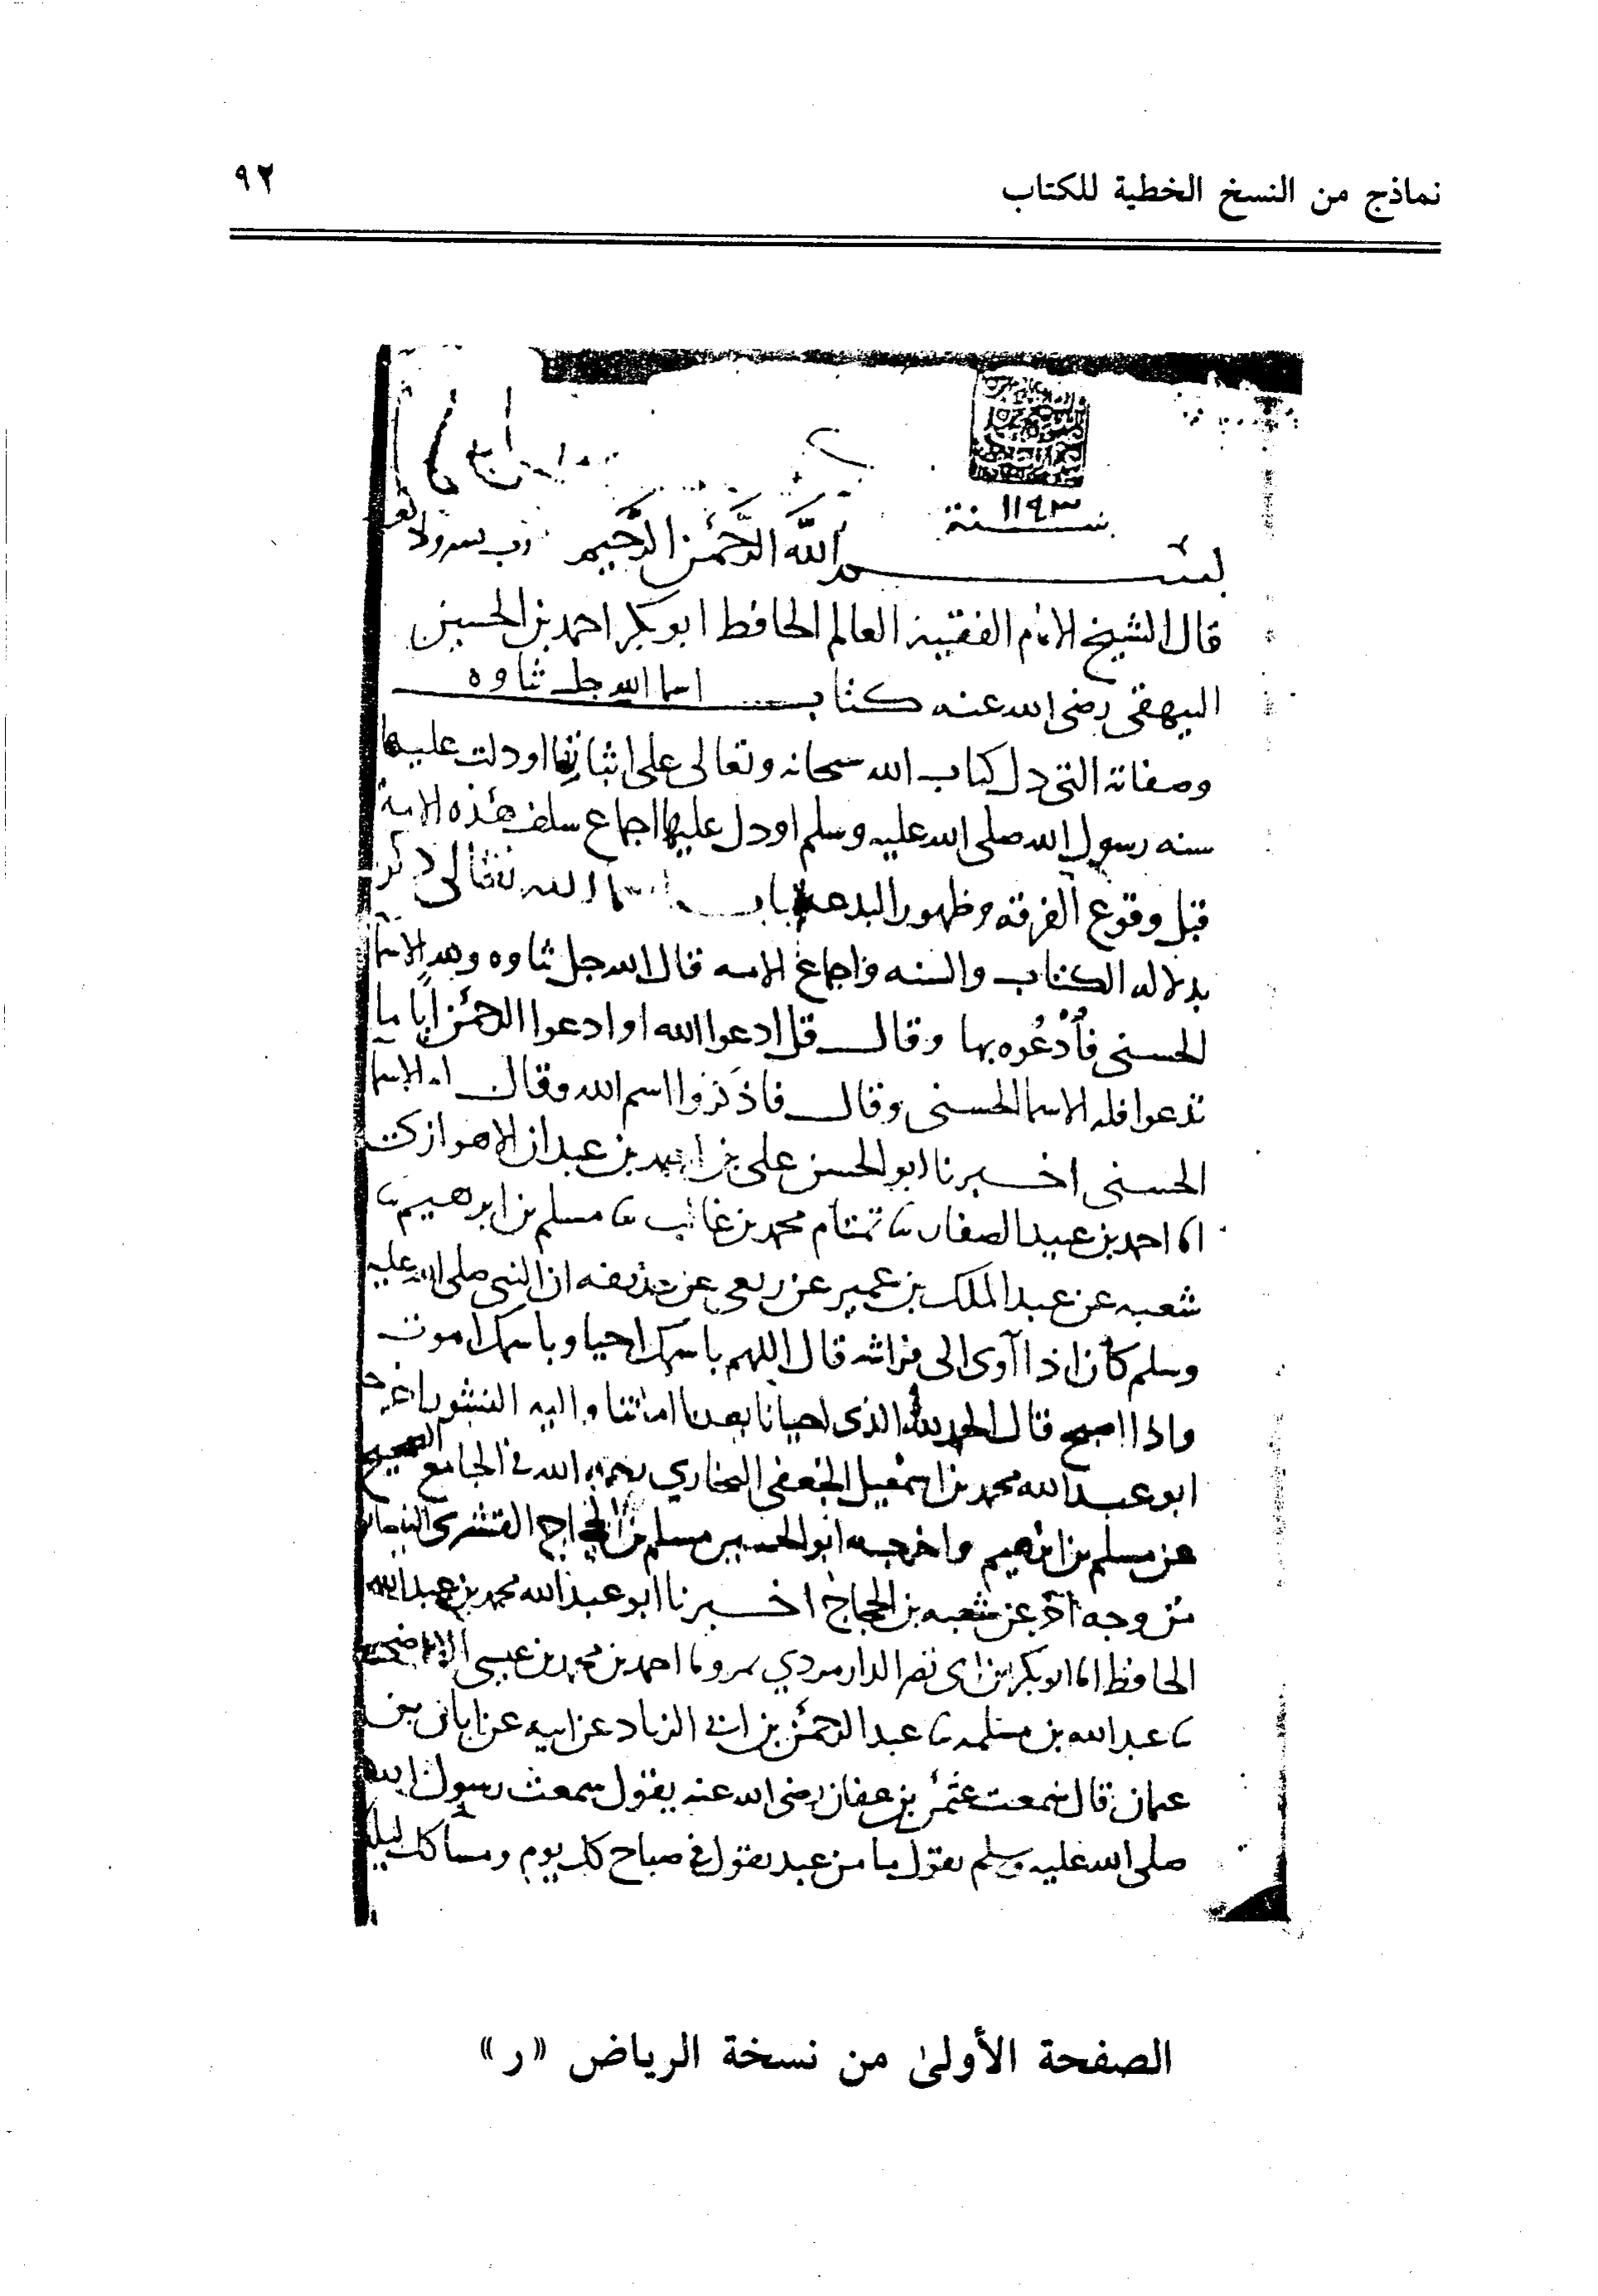 نماذج من النسخ الخطية للكتاب
٩٢
سنة ١١٩٣
بسم الله الرحمن الرحيم رب يسر ولا
قال الشيخ الامام الفقيه العالم الحافظ ابو بكر احمد بن الحسين
البيهقى رضى الله عنه كتاب اسما الله جل ثناوه
وصفاته التى دل كتاب الله سبحانه وتعالى على اثباتها او دلت عليها
سنه رسول الله صلى الله عليه وسلم او دل عليها اجماع سلف هذه الامة
قبل وقوع الفرقه وظهور البدعه باب
بدلاله الكتاب والسنه واجماع الامه قال الله جل ثناوه ولله الاسما
الحسنى فأدعُوه بها وقال قل ادعوا الله او ادعوا الرحمن ايا ما
تدعوا فله الاسما الحسنى وقال فاذكروا اسم الله وقال له الاسما
الحسنى اخبرنا ابو الحسن على بن احمد بن عبدان الاهوازى
انا احمد بن عبيد الصفار نا تمتام محمد بن غالب نا مسلم بن ابرهيم نا
شعبه عن عبد الملك بن عمير عن ربعى عن حذيفه ان النبى صلى الله عليه
وسلم كان اذا آوى الى فراشه قال اللهم باسمك احيا وباسمك اموت
واذا اصبح قال الحمد لله الذى احيانا بعدما اماتنا واليه النشور اخرجه
ابو عبد الله محمد بن اسمعيل الجعفى البخاري رحمه الله في الجامع الصحيح
عن مسلم بن ابرهيم واخرجه ابو الحسين مسلم بن الحجاج القشيرى
من وجه آخر عن شعبه بن الحجاج اخبرنا ابو عبد الله محمد بن عبد الله
الحافظ انا ابو بكر بن ابى نصر الداربردي بمرو نا احمد بن محمد بن عيسى القاضى
نا عبد الله بن مسلمه نا عبد الرحمن بن ابى الزناد عن ابيه عن ابان بن
عثمان قال سمعت عثمن بن عفان رضى الله عنه يقول سمعت رسول الله
صلى الله عليه وسلم يقول ما من عبد يقول في صباح كل يوم ومسا كل ليلة
الصفحة الأولىٰ من نسخة الرياض «ر»